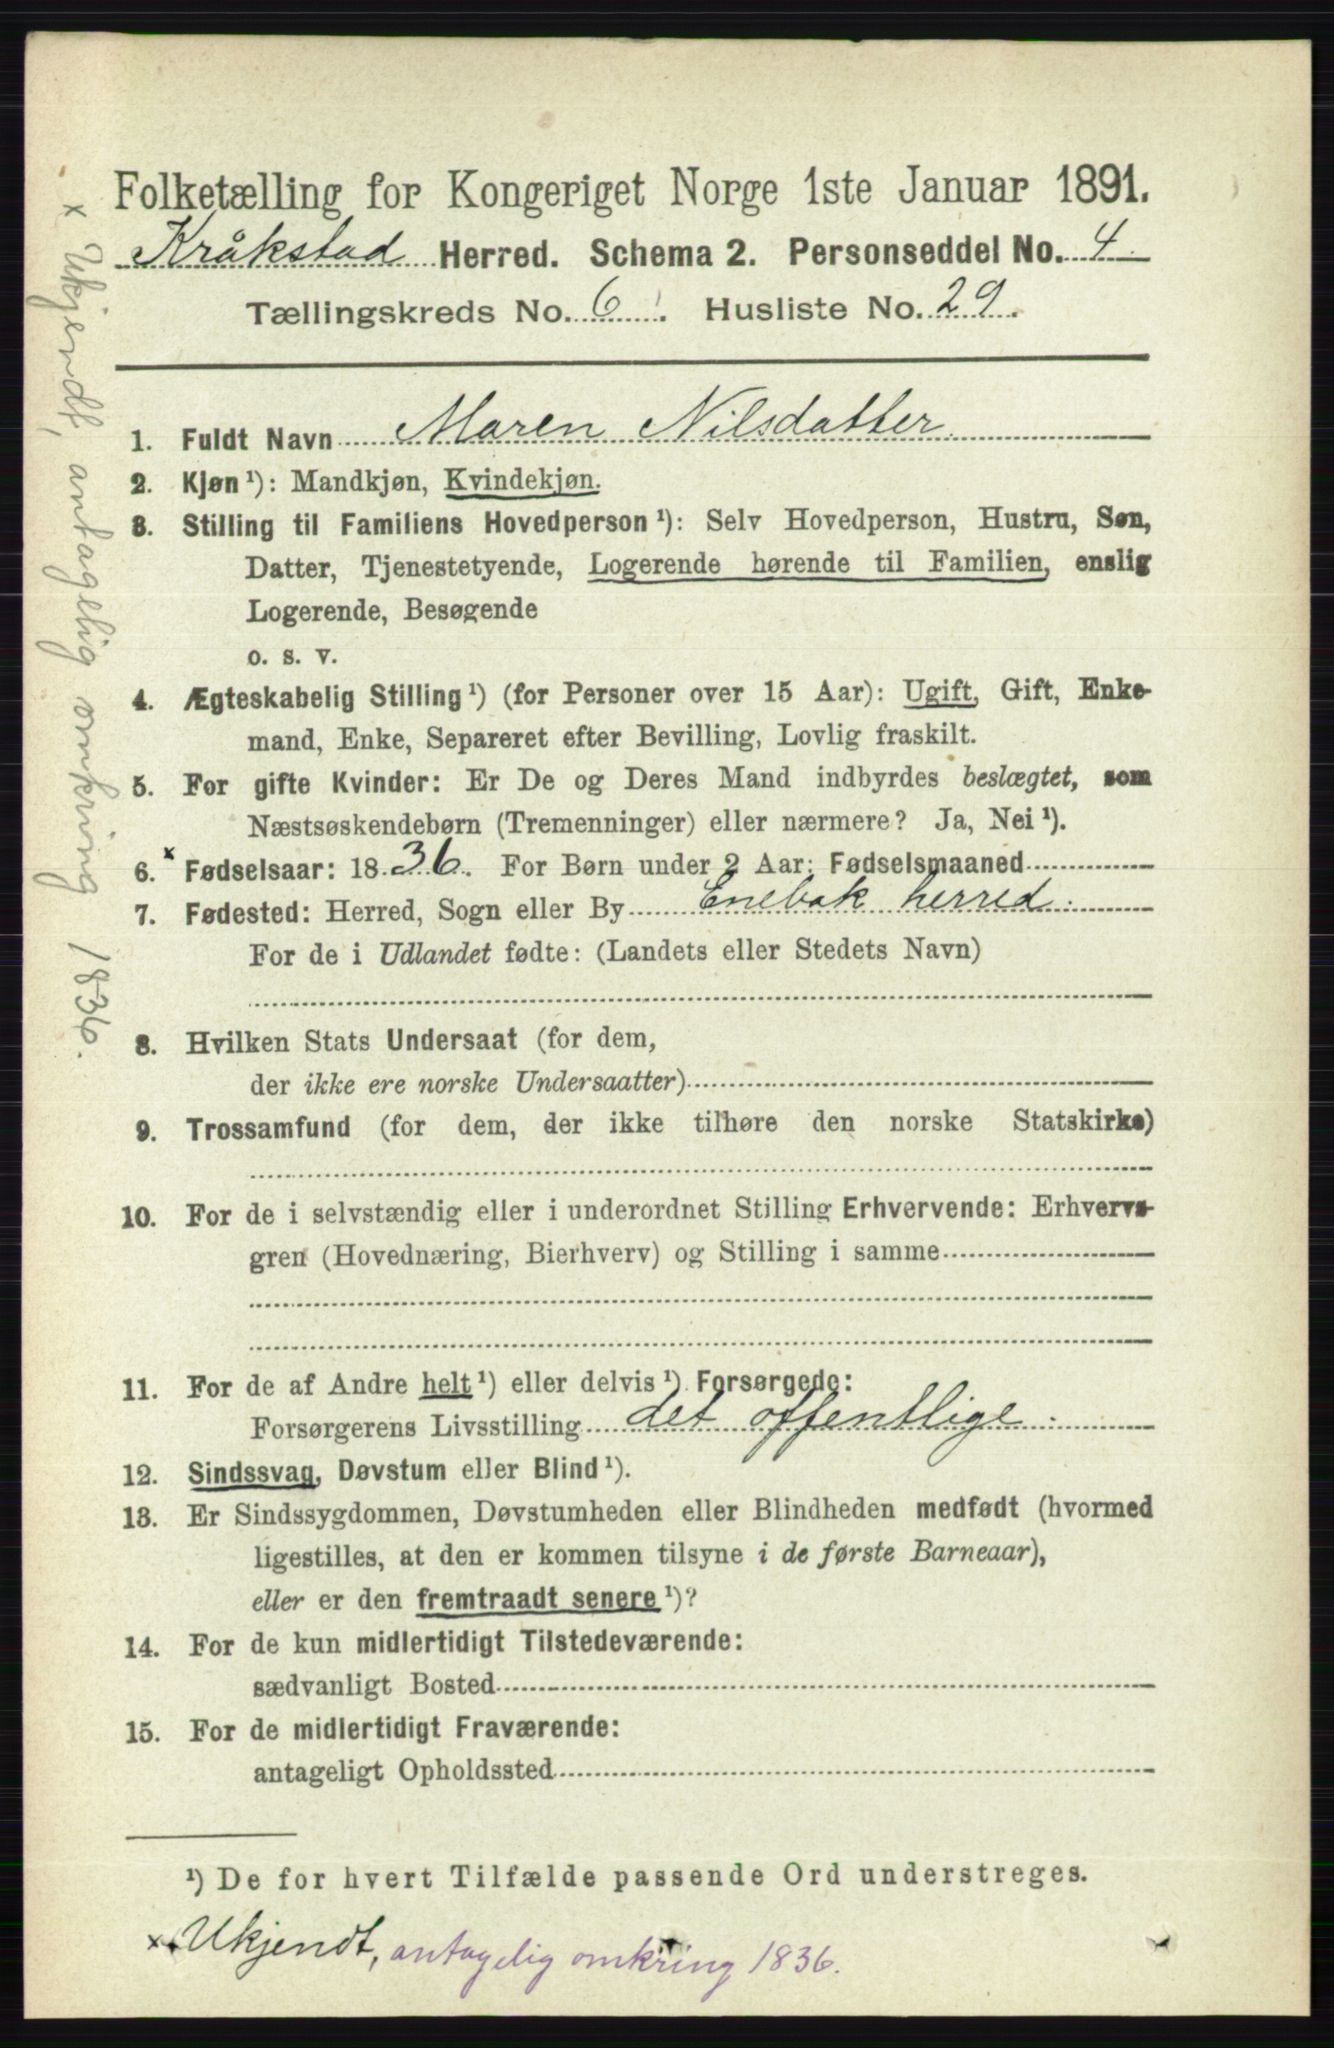 Folketælling for Kongeriget Norge 1ste Januar 1891.
Kråkstad Herred. Schema 2. Personseddel No. 4
Tællingskreds No. 6. Husliste No. 29.
1. Fuldt Navn Maren Nilsdatter.
2. Kjøn ¹): Mandkjøn, Kvindekjøn.
3. Stilling til Familiens Hovedperson ¹): Selv Hovedperson, Hustru, Søn,
Datter, Tjenestetyende, Logerende hørende til Familien, enslig
Logerende, Besøgende
o. s. v.
4. Ægteskabelig Stilling ¹) (for Personer over 15 Aar): Ugift, Gift, Enke-
mand, Enke, Separeret efter Bevilling, Lovlig fraskilt.
5. For gifte Kvinder: Er De og Deres Mand indbyrdes beslægtet, som
Næstsøskendebørn (Tremenninger) eller nærmere? Ja, Nei ¹).
6. x Fødselsaar: 1836. For Børn under 2 Aar: Fødselsmaaned
7. Fødested: Herred, Sogn eller By Enebak herred.
For de i Udlandet fødte: (Landets eller Stedets Navn)
8. Hvilken Stats Undersaat (for dem,
der ikke ere norske Undersaatter)
9. Trossamfund (for dem, der ikke tilhøre den norske Statskirke)
10. For de i selvstændig eller i underordnet Stilling Erhvervende: Erhvervs-
gren (Hovednæring, Bierhverv) og Stilling i samme
11. For de af Andre helt ¹) eller delvis ¹) Forsørgede:
Forsørgerens Livsstilling det offentlige.
12. Sindssvag, Døvstum eller Blind ¹).
13. Er Sindssygdommen, Døvstumheden eller Blindheden medfødt (hvormed
ligestilles, at den er kommen tilsyne i de første Barneaar),
eller er den fremtraadt senere ¹)?
14. For de kun midlertidigt Tilstedeværende:
sædvanligt Bosted
15. For de midlertidigt Fraværende:
antageligt Opholdssted
¹) De for hvert Tilfælde passende Ord understreges.
x Ukjendt, antagelig omkring 1836.
x Ukjendt, antagelig omkring 1836.